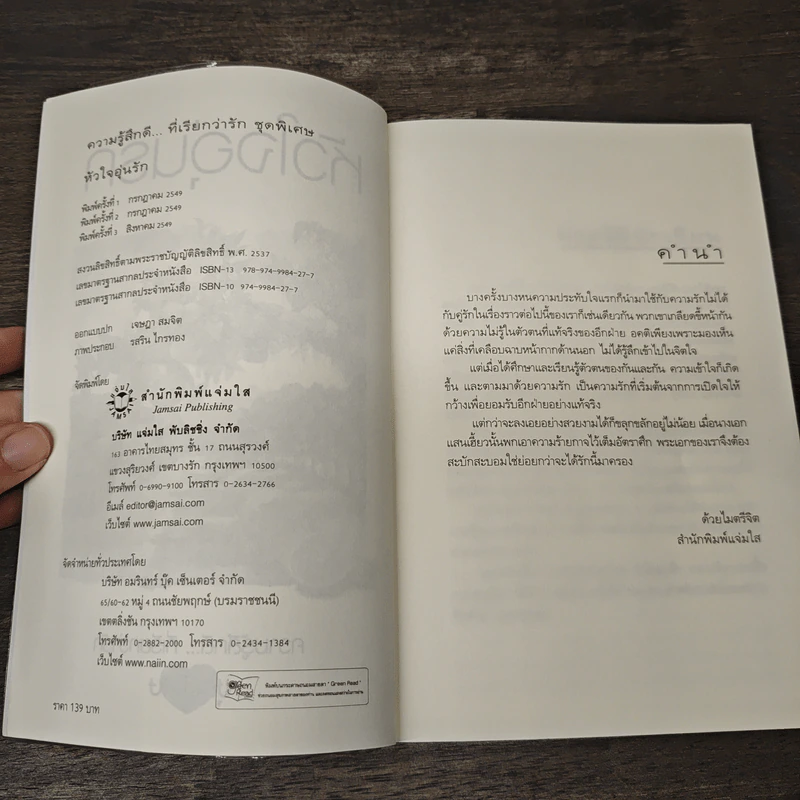 ความรู้สึกดี... ที่เรียกว่ารัก ชุดพิเศษ
หัวใจอุ่นรัก
พิมพ์ครั้งที่ 1 กรกฎาคม 2549
พิมพ์ครั้งที่ 2 กรกฎาคม 2549
พิมพ์ครั้งที่ 3 สิงหาคม 2549
สงวนลิขสิทธิ์ตามพระราชบัญญัติลิขสิทธิ์ พ.ศ. 2537
เลขมาตรฐานสากลประจำหนังสือ ISBN-13 978-974-9984-27-7
เลขมาตรฐานสากลประจำหนังสือ ISBN-10 974-9984-27-7
ออกแบบปก เจษฎา สมจิต
ภาพประกอบ รสริน ไกรทอง
จัดพิมพ์โดย
สำนักพิมพ์แจ่มใส
Jamsai Publishing
บริษัท แจ่มใส พับลิชชิ่ง จำกัด
163 อาคารไทยสมุทร ชั้น 17 ถนนสุรวงศ์
แขวงสุริยวงศ์ เขตบางรัก กรุงเทพฯ 10500
โทรศัพท์ 0-6990-9100 โทรสาร 0-2634-2766
อีเมล์ editor@jamsai.com
เว็บไซต์ www.jamsai.com
จัดจำหน่ายทั่วประเทศโดย
บริษัท อมรินทร์ บุ๊ค เซ็นเตอร์ จำกัด
65/60-62 หมู่ 4 ถนนชัยพฤกษ์ (บรมราชชนนี)
เขตตลิ่งชัน กรุงเทพฯ 10170
โทรศัพท์ 0-2882-2000 โทรสาร 0-2434-1384
เว็บไซต์ www.naiin.com
Green Read
พิมพ์บนกระดาษถนอมสายตา "Green Read"
ราคา 139 บาท
คำนำ
บางครั้งบางหนความประทับใจแรกก็นำมาใช้กับความรักไม่ได้
กับคู่รักในเรื่องราวต่อไปนี้ของเราก็เช่นเดียวกัน พวกเขาเกลียดขี้หน้ากัน
ด้วยความไม่รู้ในตัวตนที่แท้จริงของอีกฝ่าย อคติเพียงเพราะมองเห็น
แค่สิ่งที่เคลือบฉาบหน้ากากด้านนอก ไม่ได้รู้ลึกเข้าไปในจิตใจ
แต่เมื่อได้ศึกษาและเรียนรู้ตัวตนของกันและกัน ความเข้าใจก็เกิด
ขึ้น และตามมาด้วยความรัก เป็นความรักที่เริ่มต้นจากการเปิดใจให้
กว้างเพื่อยอมรับอีกฝ่ายอย่างแท้จริง
แต่กว่าจะลงเอยอย่างสวยงามได้ก็ขลุกขลักอยู่ไม่น้อย เมื่อนางเอก
แสนเฮี้ยวนั้นพกเอาความร้ายกาจไว้เต็มอัตราศึก พระเอกของเราจึงต้อง
สะบักสะบอมใช่ย่อยกว่าจะได้รักนี้มาครอง
ด้วยไมตรีจิต
สำนักพิมพ์แจ่มใส